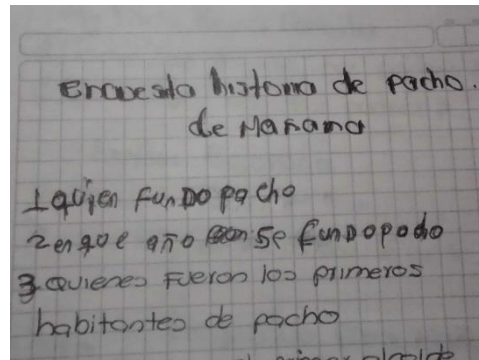 encuesta historia de pacho.
de Mañana
1 quien fundo pacho
2 en que año se fundo pacho
3 quienes fueron los primeros
habitantes de pacho
el primer alcalde